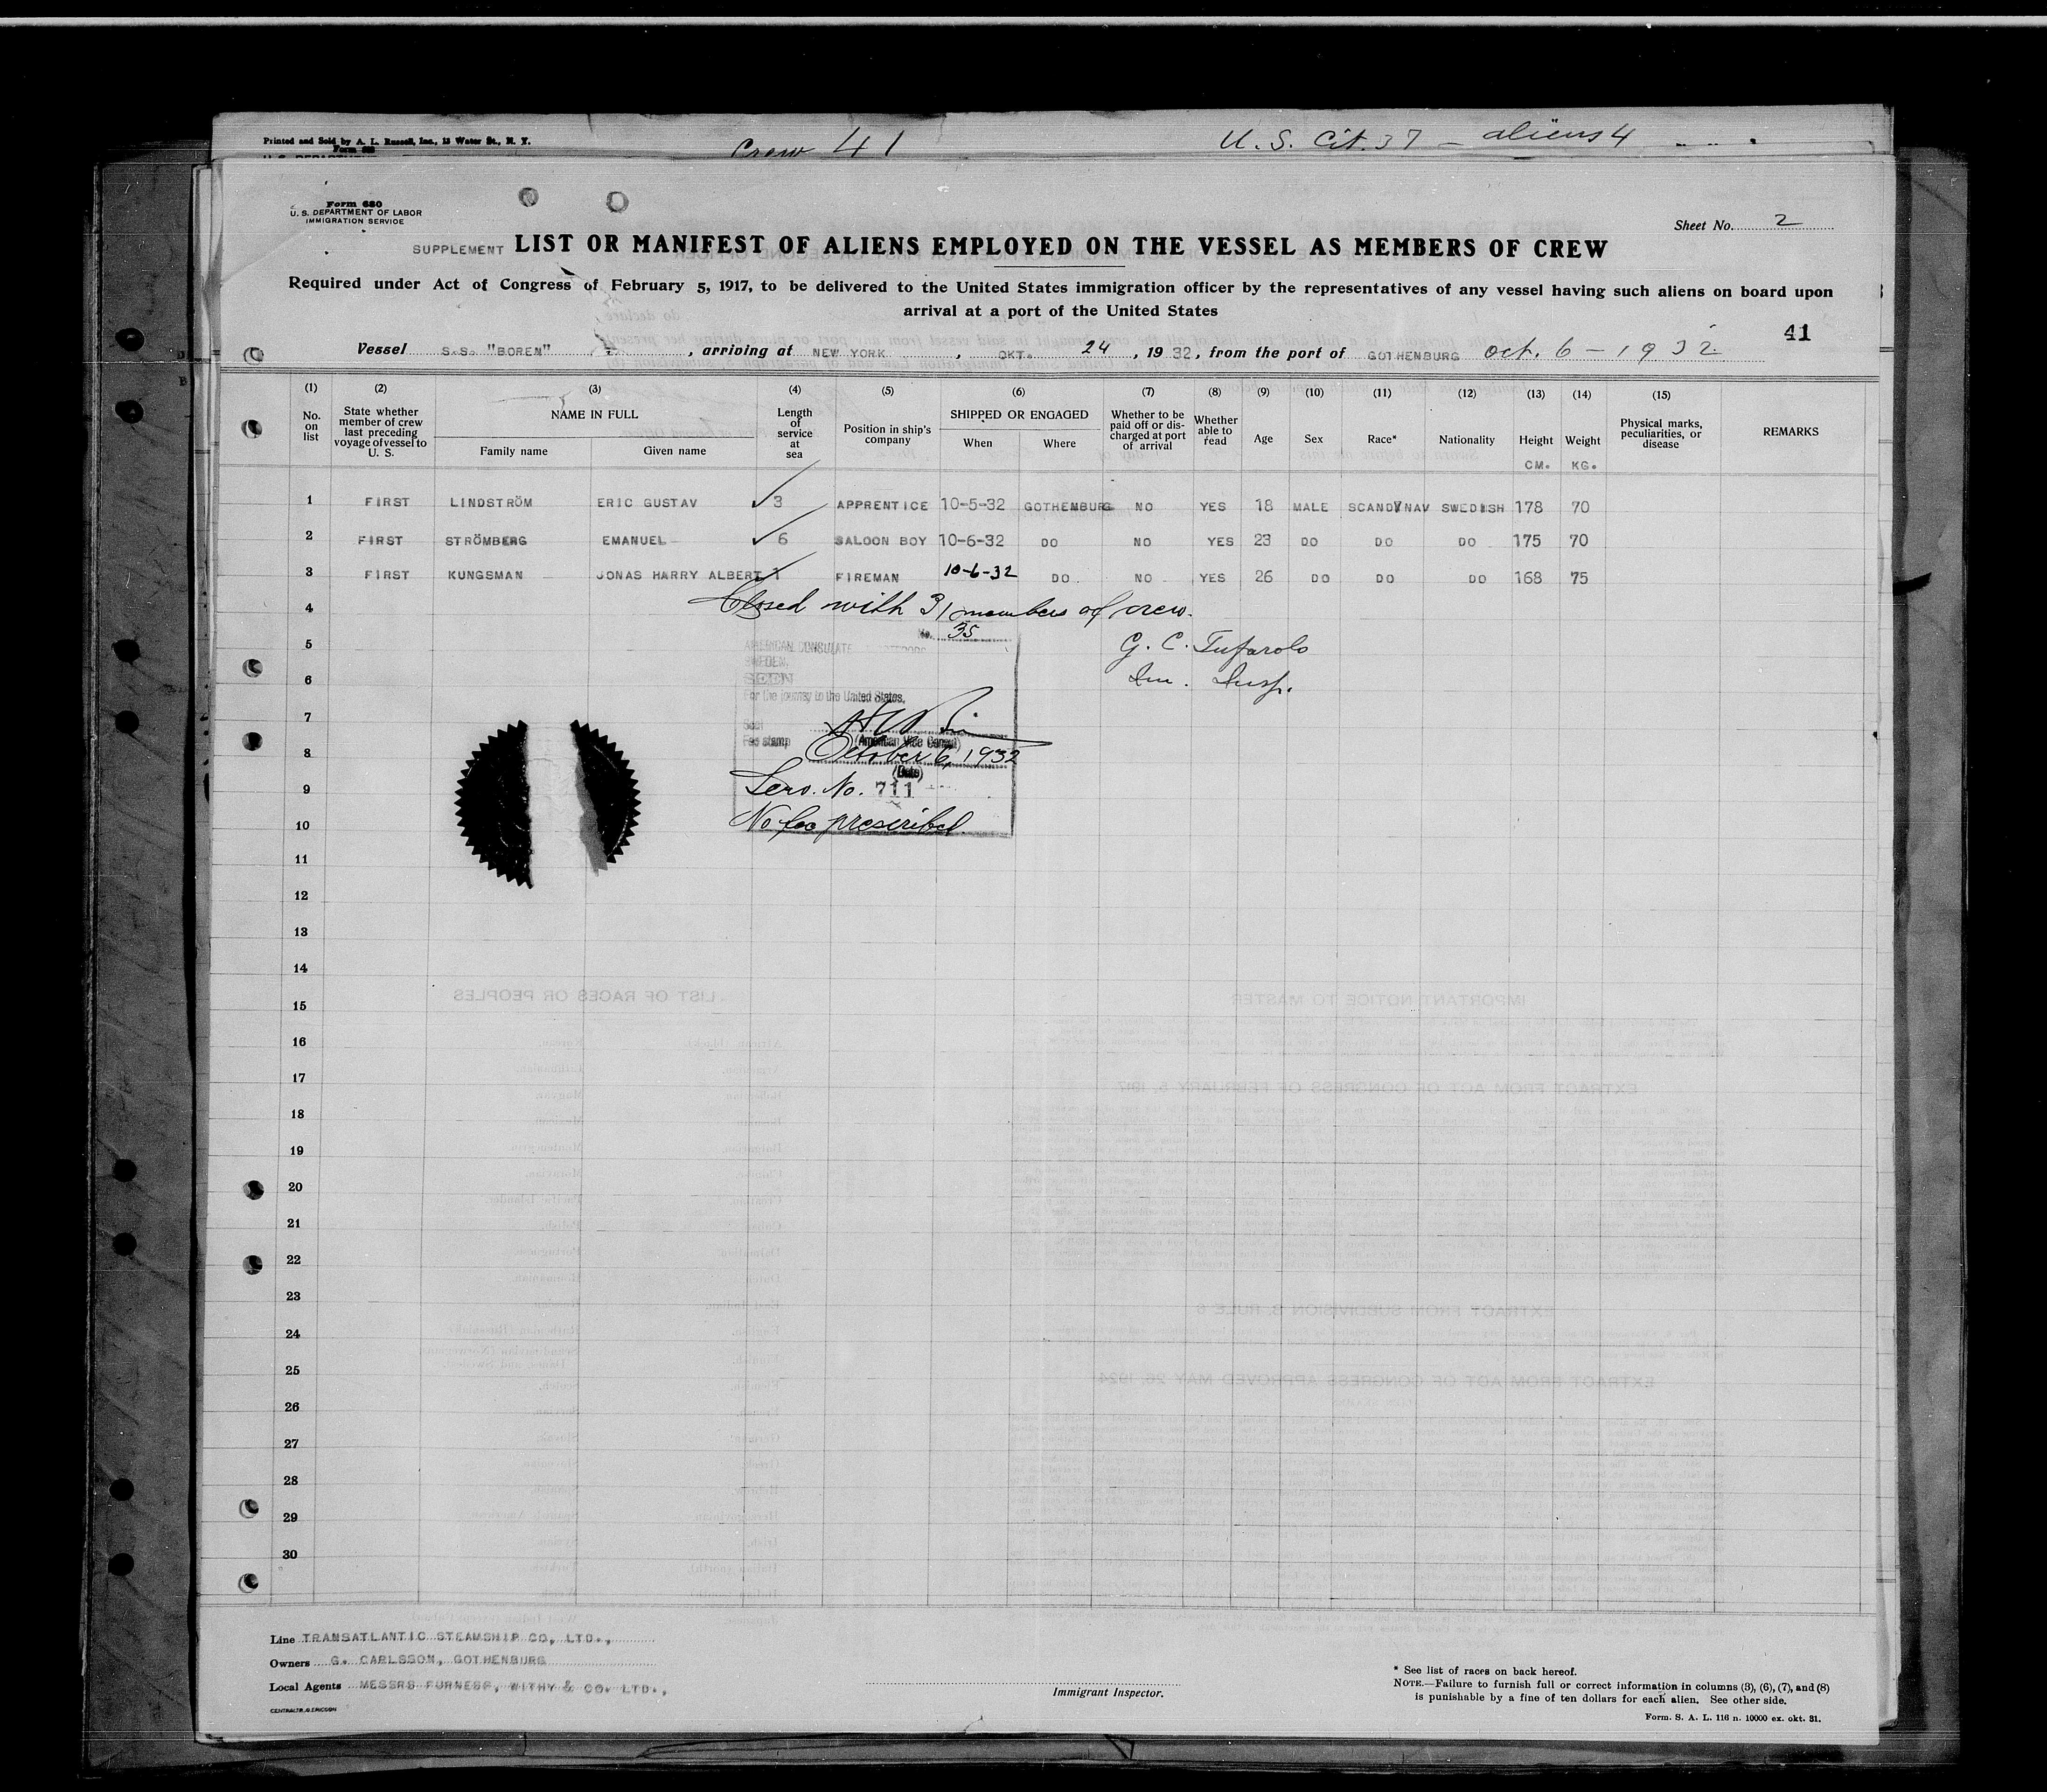 Printed and Sold by A. L. Russell, Inc., 13 Water St., N. Y.
Crew 41
U. S. Cit. 37 — aliens 4
Form 680
U. S. DEPARTMENT OF LABOR
IMMIGRATION SERVICE
Sheet No. 2
SUPPLEMENT LIST OR MANIFEST OF ALIENS EMPLOYED ON THE VESSEL AS MEMBERS OF CREW
Required under Act of Congress of February 5, 1917, to be delivered to the United States immigration officer by the representatives of any vessel having such aliens on board upon
arrival at a port of the United States
41
Vessel S.S. "BOREN", arriving at NEW YORK, OKT. 24, 1932, from the port of GOTHENBURG Oct. 6 - 1932
(1) (2) (3) (4) (5) (6) (7) (8) (9) (10) (11) (12) (13) (14) (15)
No. on list
State whether member of crew last preceding voyage of vessel to U. S.
NAME IN FULL
Family name Given name
Length of service at sea
Position in ship's company
SHIPPED OR ENGAGED
When Where
Whether to be paid off or discharged at port of arrival
Whether able to read
Age
Sex
Race*
Nationality
Height
CM.
Weight
KG.
Physical marks, peculiarities, or disease
REMARKS
1 FIRST LINDSTRÖM ERIC GUSTAV 3 APPRENTICE 10-5-32 GOTHENBURG NO YES 18 MALE SCANDINAV SWEDISH 178 70
2 FIRST STRÖMBERG EMANUEL 6 SALOON BOY 10-6-32 DO NO YES 23 DO DO DO 175 70
3 FIRST KUNGSMAN JONAS HARRY ALBERT 1 FIREMAN 10-6-32 DO NO YES 26 DO DO DO 168 75
4 Closed with 31 members of crew.
No. 35
5 AMERICAN CONSULATE
G. C. Tufarolo
SWEDEN,
6 SEEN
Im. Insp.
For the journey to the United States,
7 Seal
Fee stamp (American Vice Consul)
8 October 6, 1932
(Date)
9 Serv. No. 711
10 No fee prescribed.
11
12
13
14
15
16
17
18
19
20
21
22
23
24
25
26
27
28
29
30
Line TRANSATLANTIC STEAMSHIP CO, LTD.,
Owners G. CARLSSON, GOTHENBURG
Local Agents MESSRS FURNESS, WITHY & CO. LTD.,
CENTRALTR. G. ERICSON
Immigrant Inspector.
* See list of races on back hereof.
NOTE.—Failure to furnish full or correct information in columns (3), (6), (7), and (8)
is punishable by a fine of ten dollars for each alien. See other side.
Form. S. A. L. 116 n. 10000 ex. okt. 31.